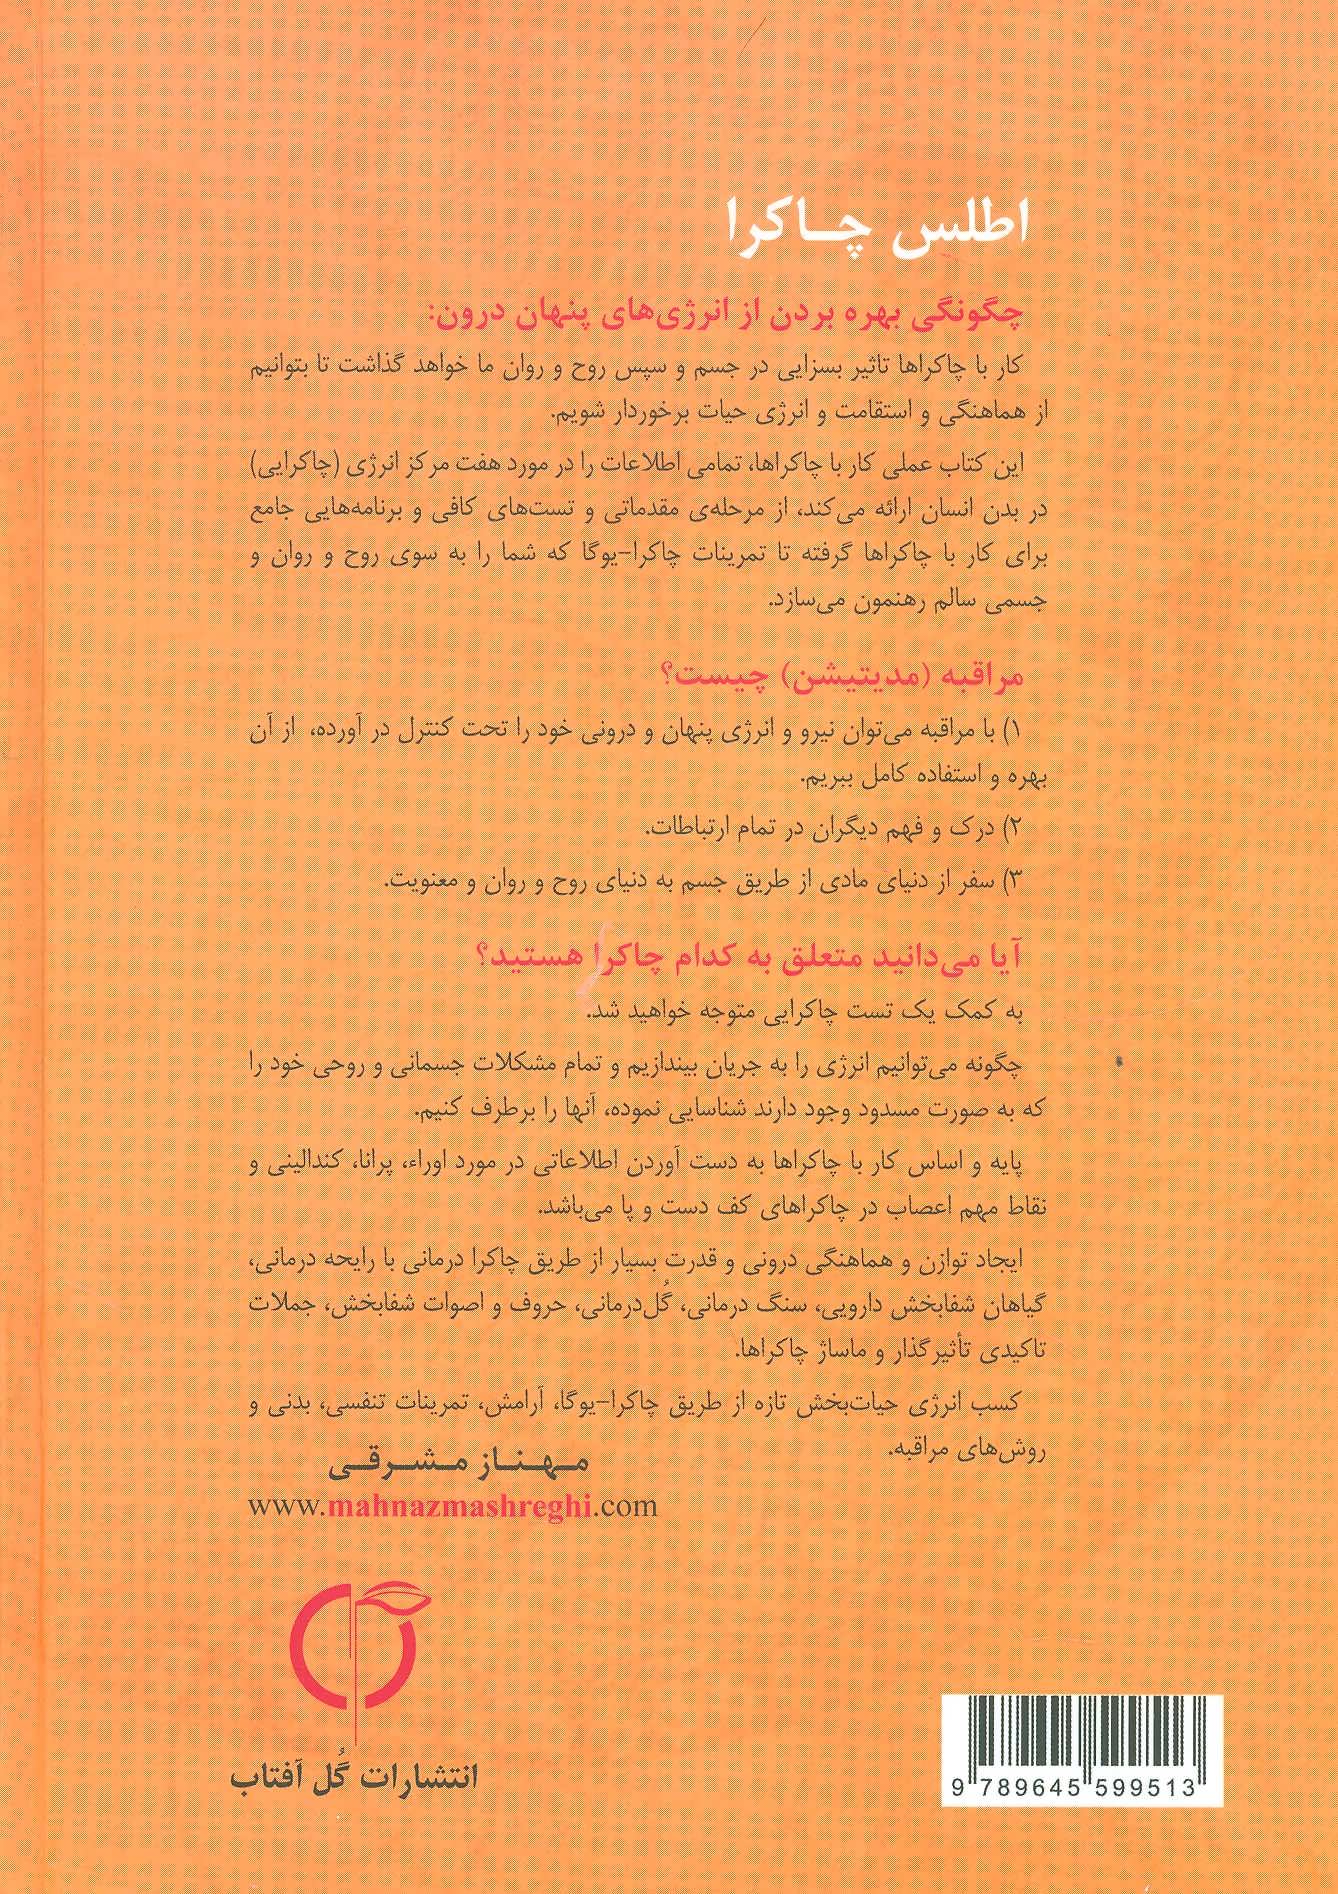 اطلس چاکرا
چگونگی بهره بردن از انرژی‌های پنهان درون:
کار با چاکراها تاثیر بسزایی در جسم و سپس روح و روان ما خواهد گذاشت تا بتوانیم
از هماهنگی و استقامت و انرژی حیات برخوردار شویم.
این کتاب عملی کار با چاکراها، تمامی اطلاعات را در مورد هفت مرکز انرژی (چاکرایی)
در بدن انسان ارائه می‌کند، از مرحله‌ی مقدماتی و تست‌های کافی و برنامه‌هایی جامع
برای کار با چاکراها گرفته تا تمرینات چاکرا-یوگا که شما را به سوی روح و روان و
جسمی سالم رهنمون می‌سازد.
مراقبه (مدیتیشن) چیست؟
۱) با مراقبه می‌توان نیرو و انرژی پنهان و درونی خود را تحت کنترل در آورده، از آن
بهره و استفاده کامل ببریم.
۲) درک و فهم دیگران در تمام ارتباطات.
۳) سفر از دنیای مادی از طریق جسم به دنیای روح و روان و معنویت.
آیا می‌دانید متعلق به کدام چاکرا هستید؟
به کمک یک تست چاکرایی متوجه خواهید شد.
چگونه می‌توانیم انرژی را به جریان بیندازیم و تمام مشکلات جسمانی و روحی خود را
که به صورت مسدود وجود دارند شناسایی نموده، آنها را برطرف کنیم.
پایه و اساس کار با چاکراها به دست آوردن اطلاعاتی در مورد اوراء، پرانا، کندالینی و
نقاط مهم اعصاب در چاکراهای کف دست و پا می‌باشد.
ایجاد توازن و هماهنگی درونی و قدرت بسیار از طریق چاکرا درمانی با رایحه درمانی،
گیاهان شفابخش دارویی، سنگ درمانی، گُل‌درمانی، حروف و اصوات شفابخش، جملات
تاکیدی تأثیرگذار و ماساژ چاکراها.
کسب انرژی حیات‌بخش تازه از طریق چاکرا-یوگا، آرامش، تمرینات تنفسی، بدنی و
روش‌های مراقبه.
مهناز مشرقی
www.mahnazmashreghi.com
انتشارات گُل آفتاب
9 789645 599513